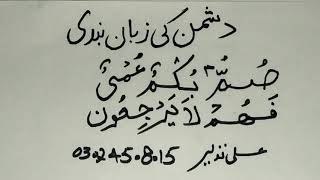 دشمن کی زبان بندی
صُمٌّ بُكْمٌ عُمْیٌ
فَهُمْ لَا یَرْجِعُونَ
علی نذیر 03.245.8.15